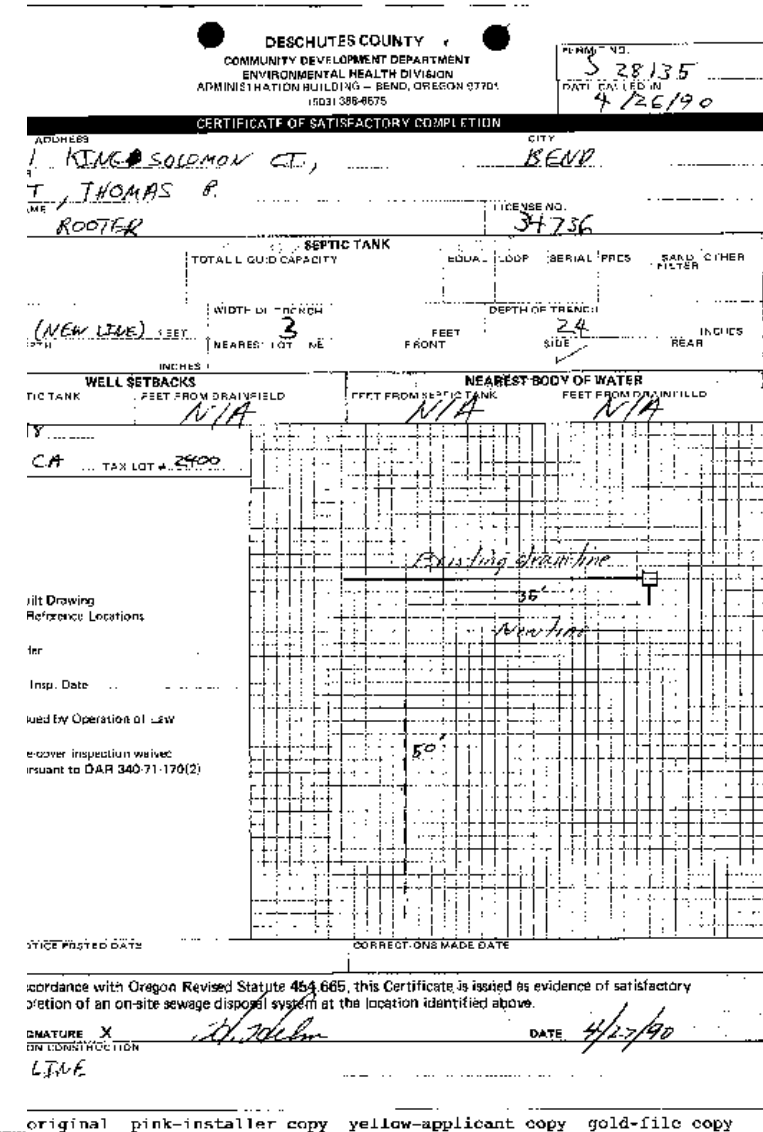 DESCHUTES COUNTY
COMMUNITY DEVELOPMENT DEPARTMENT
ENVIRONMENTAL HEALTH DIVISION
ADMINISTRATION BUILDING – BEND, OREGON 97701
(503) 388-6575
PERMIT NO.
S 28135
DATE CALLED IN
4/26/90
CERTIFICATE OF SATISFACTORY COMPLETION
ADDRESS CITY
KING SOLOMON CT., BEND
T, THOMAS P.
LICENSE NO.
ROOTER 34736
SEPTIC TANK
TOTAL LIQUID CAPACITY EQUAL LOOP SERIAL PRES SAND FILTER OTHER
WIDTH OF TRENCH DEPTH OF TRENCH
(NEW LINE) FEET 3 FEET 24 INCHES
NEAREST LOT LINE FRONT SIDE REAR
INCHES
WELL SETBACKS NEAREST BODY OF WATER
TIC TANK FEET FROM DRAINFIELD FEET FROM SEPTIC TANK FEET FROM DRAINFIELD
N/A N/A N/A
8
CA TAX LOT # 2400
Existing drainline
35'
New line
50'
uilt Drawing
Reference Locations
Insp. Date
sued By Operation of Law
e-cover inspection waived
rsuant to OAR 340-71-170(2)
OTICE POSTED DATE CORRECTIONS MADE DATE
ccordance with Oregon Revised Statute 454.665, this Certificate is issued as evidence of satisfactory
pletion of an on-site sewage disposal system at the location identified above.
GNATURE X DATE 4/27/90
ON CONSTRUCTION
LINE
original pink-installer copy yellow-applicant copy gold-file copy